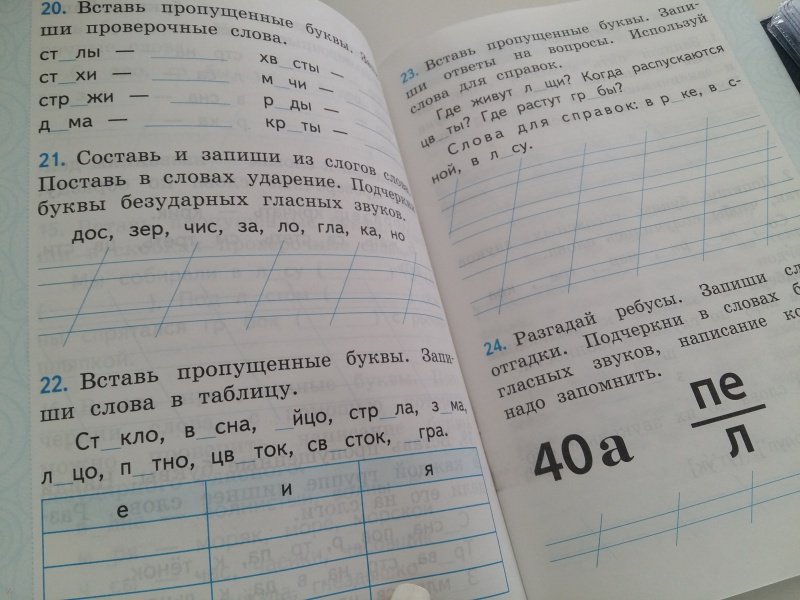 20. Вставь пропущенные буквы.
ши проверочные слова.
ст_лы —
хв_сты —
ст_хи —
м_чи —
стр_жи —
р_ды —
д_ма —
кр_ты —
21. Составь и запиши из слогов слова.
Поставь в словах ударение. Подчеркни
буквы безударных гласных звуков.
дос, зер, чис, за, ло, гла, ка, но
22. Вставь пропущенные буквы. Запи-
ши слова в таблицу.
Ст_кло, в_сна, _йцо, стр_ла, з_ма,
л_цо, п_тно, цв_ток, св_сток, _гра.
е
и
я
23. Вставь пропущенные буквы. Запи-
ши ответы на вопросы. Используй
слова для справок.
Где живут л_щи? Когда распускаются
цв_ты? Где растут гр_бы?
Слова для справок: в р_ке, в_с-
ной, в л_су.
24. Разгадай ребусы. Запиши
отгадки. Подчеркни в словах
гласных звуков, написание
надо запомнить.
40а
пе
л